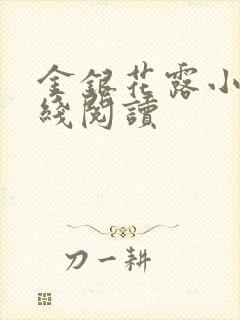 金銀花露小
綫閱讀
刀一耕